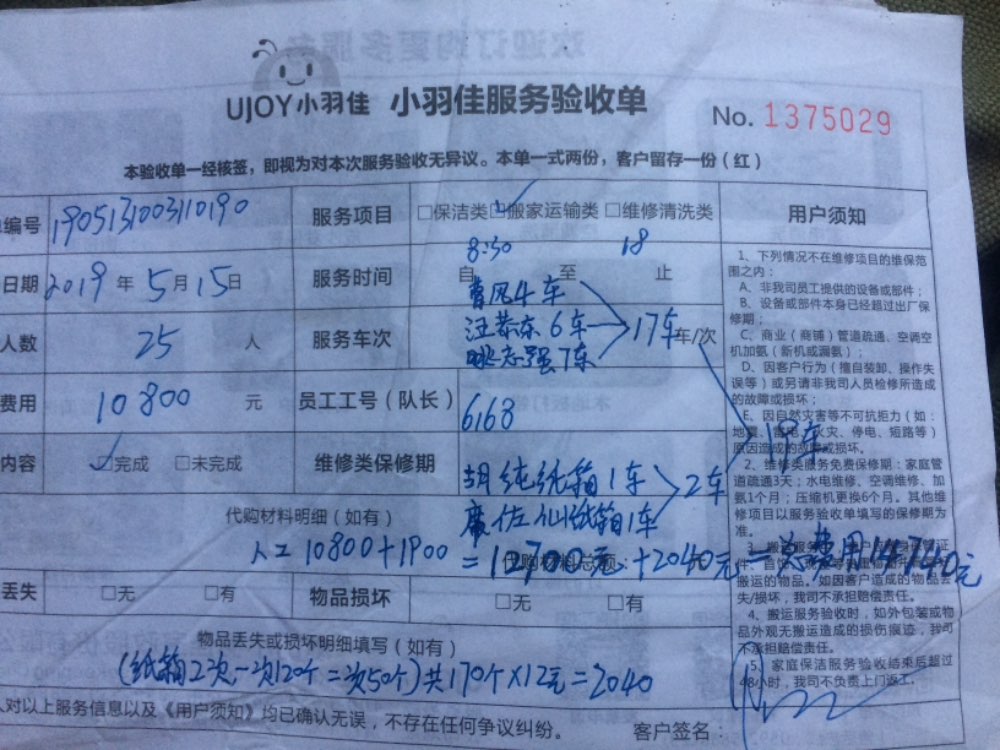 UJOY小羽佳 小羽佳服务验收单 No. 1375029
本验收单一经核签，即视为对本次服务验收无异议。本单一式两份，客户留存一份（红）
编号 190513100311019０ 服务项目 □保洁类 ☑搬家运输类 □维修清洗类 用户须知
日期 2019 年 5 月 15 日 服务时间 8:30 自 至 18 止
人数 25 人 服务车次 曹风4车
汪恭东6车 17车 年/次
姚志强7车
费用 10800 元 员工工号（队长） 6168
19车
内容 ☑完成 □未完成 维修类保修期 胡纯纸箱1车 2车
佐仙纸箱1车
代购材料明细（如有）
人工10800+1900 =12700元 +2040元 =总费用14740元
丢失 □无 □有 物品损坏 □无 □有
物品丢失或损坏明细填写（如有）
（纸箱2次，一次120个 二次50个）共170个×12元=2040
人对以上服务信息以及《用户须知》均已确认无误，不存在任何争议纠纷。 客户签名：
1、下列情况不在维修项目的维保范
围之内：
A、非我司员工提供的设备或部件；
B、设备或部件本身已经超过出厂保
修期；
C、商业（商铺）管道疏通、空调空
机加氨（新机或漏氨）；
D、因客户行为（擅自装卸、操作失
误等）或另请非我司人员检修所造成
的故障或损坏；
E、因自然灾害等不可抗拒力（如：
地震、雷电、火灾、停电、短路等）
原因造成的故障或损坏。
2、维修类服务免费保修期：家庭管
道疏通3天；水电维修、空调维修、加
氨1个月；压缩机更换6个月。其他维
修项目以服务验收单填写的保修期为
准。
搬运的物品。如因客户造成的物品丢
失/损坏，我司不承担赔偿责任。
4、搬运服务验收时，如外包装或物
品外观无搬运造成的损伤痕迹，我司
不承担赔偿责任。
5、家庭保洁服务验收结束后超过
48小时，我司不负责上门返工。